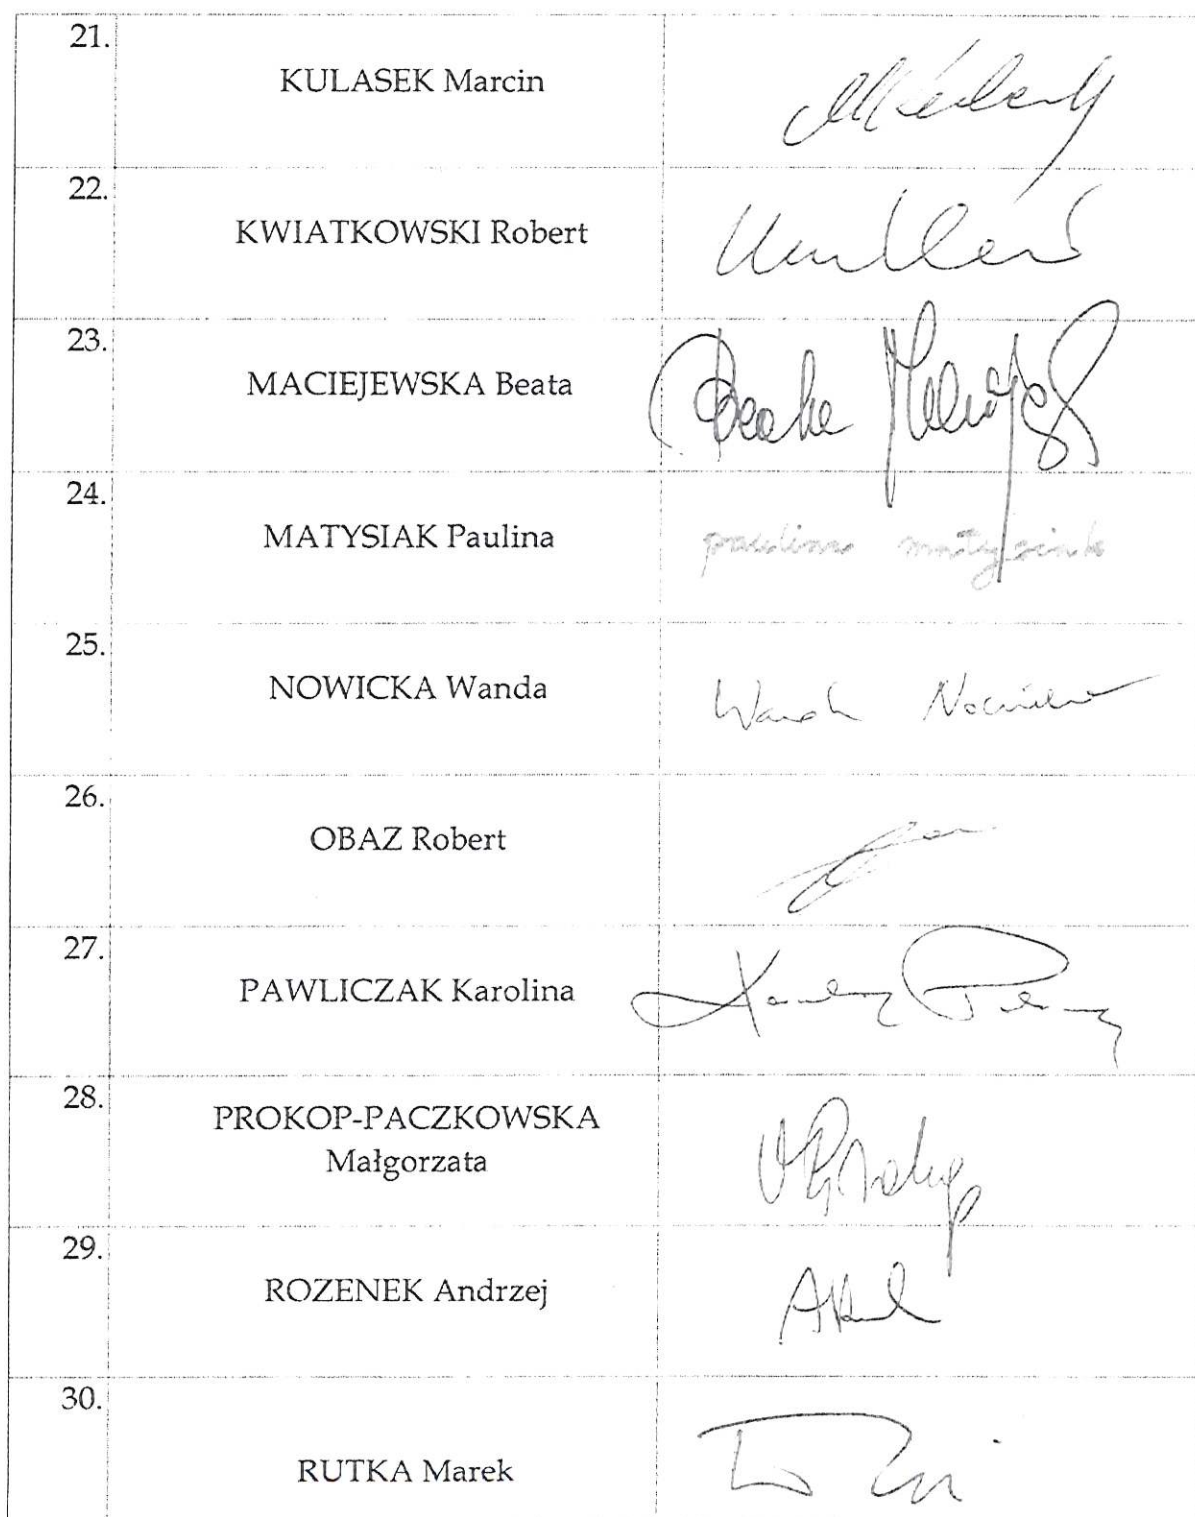 21.
KULASEK Marcin
22.
KWIATKOWSKI Robert
23.
MACIEJEWSKA Beata
Beata
24.
MATYSIAK Paulina
paulina matysiak
25.
NOWICKA Wanda
Wanda Nowicka
26.
OBAZ Robert
27.
PAWLICZAK Karolina
28.
PROKOP-PACZKOWSKA
Małgorzata
29.
ROZENEK Andrzej
30.
RUTKA Marek